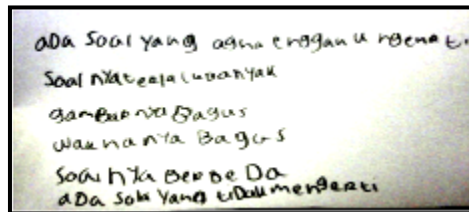 aDa Soal yang
Soalnya terlalu banyak
gambarnya Bagus
warnanya Bagus
Soalnya Berbe Da
aDa Soal yang tiDak mengerti